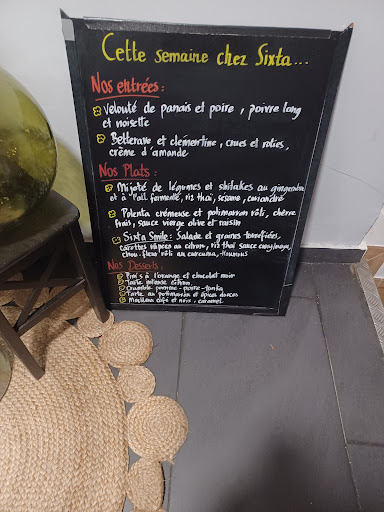 Cette semaine chez Sixta...
Nos entrées:
Velouté de panais et poire, poivre long
et noisette
Betterave et clémentine, crues et roties,
crème d'amande
Nos Plats:
Mijoté de légumes et shitakes au gingembre
et à l'ail fermenté, riz thaï, sésame, coriandre
Polenta crémeuse et potimarron rôti, chèvre
frais, sauce vierge olive et raisin
Sixta Smile: Salade et graines torréfiées,
carottes râpées au citron, riz thaï sauce
chou-fleur rôti au curcuma, houmous
Nos Desserts:
à l'orange et chocolat noir
Tarte intense citron
Crumble pomme-poire-tonka
Tarte au potimarron et épices douces
Moelleux café et noix, caramel